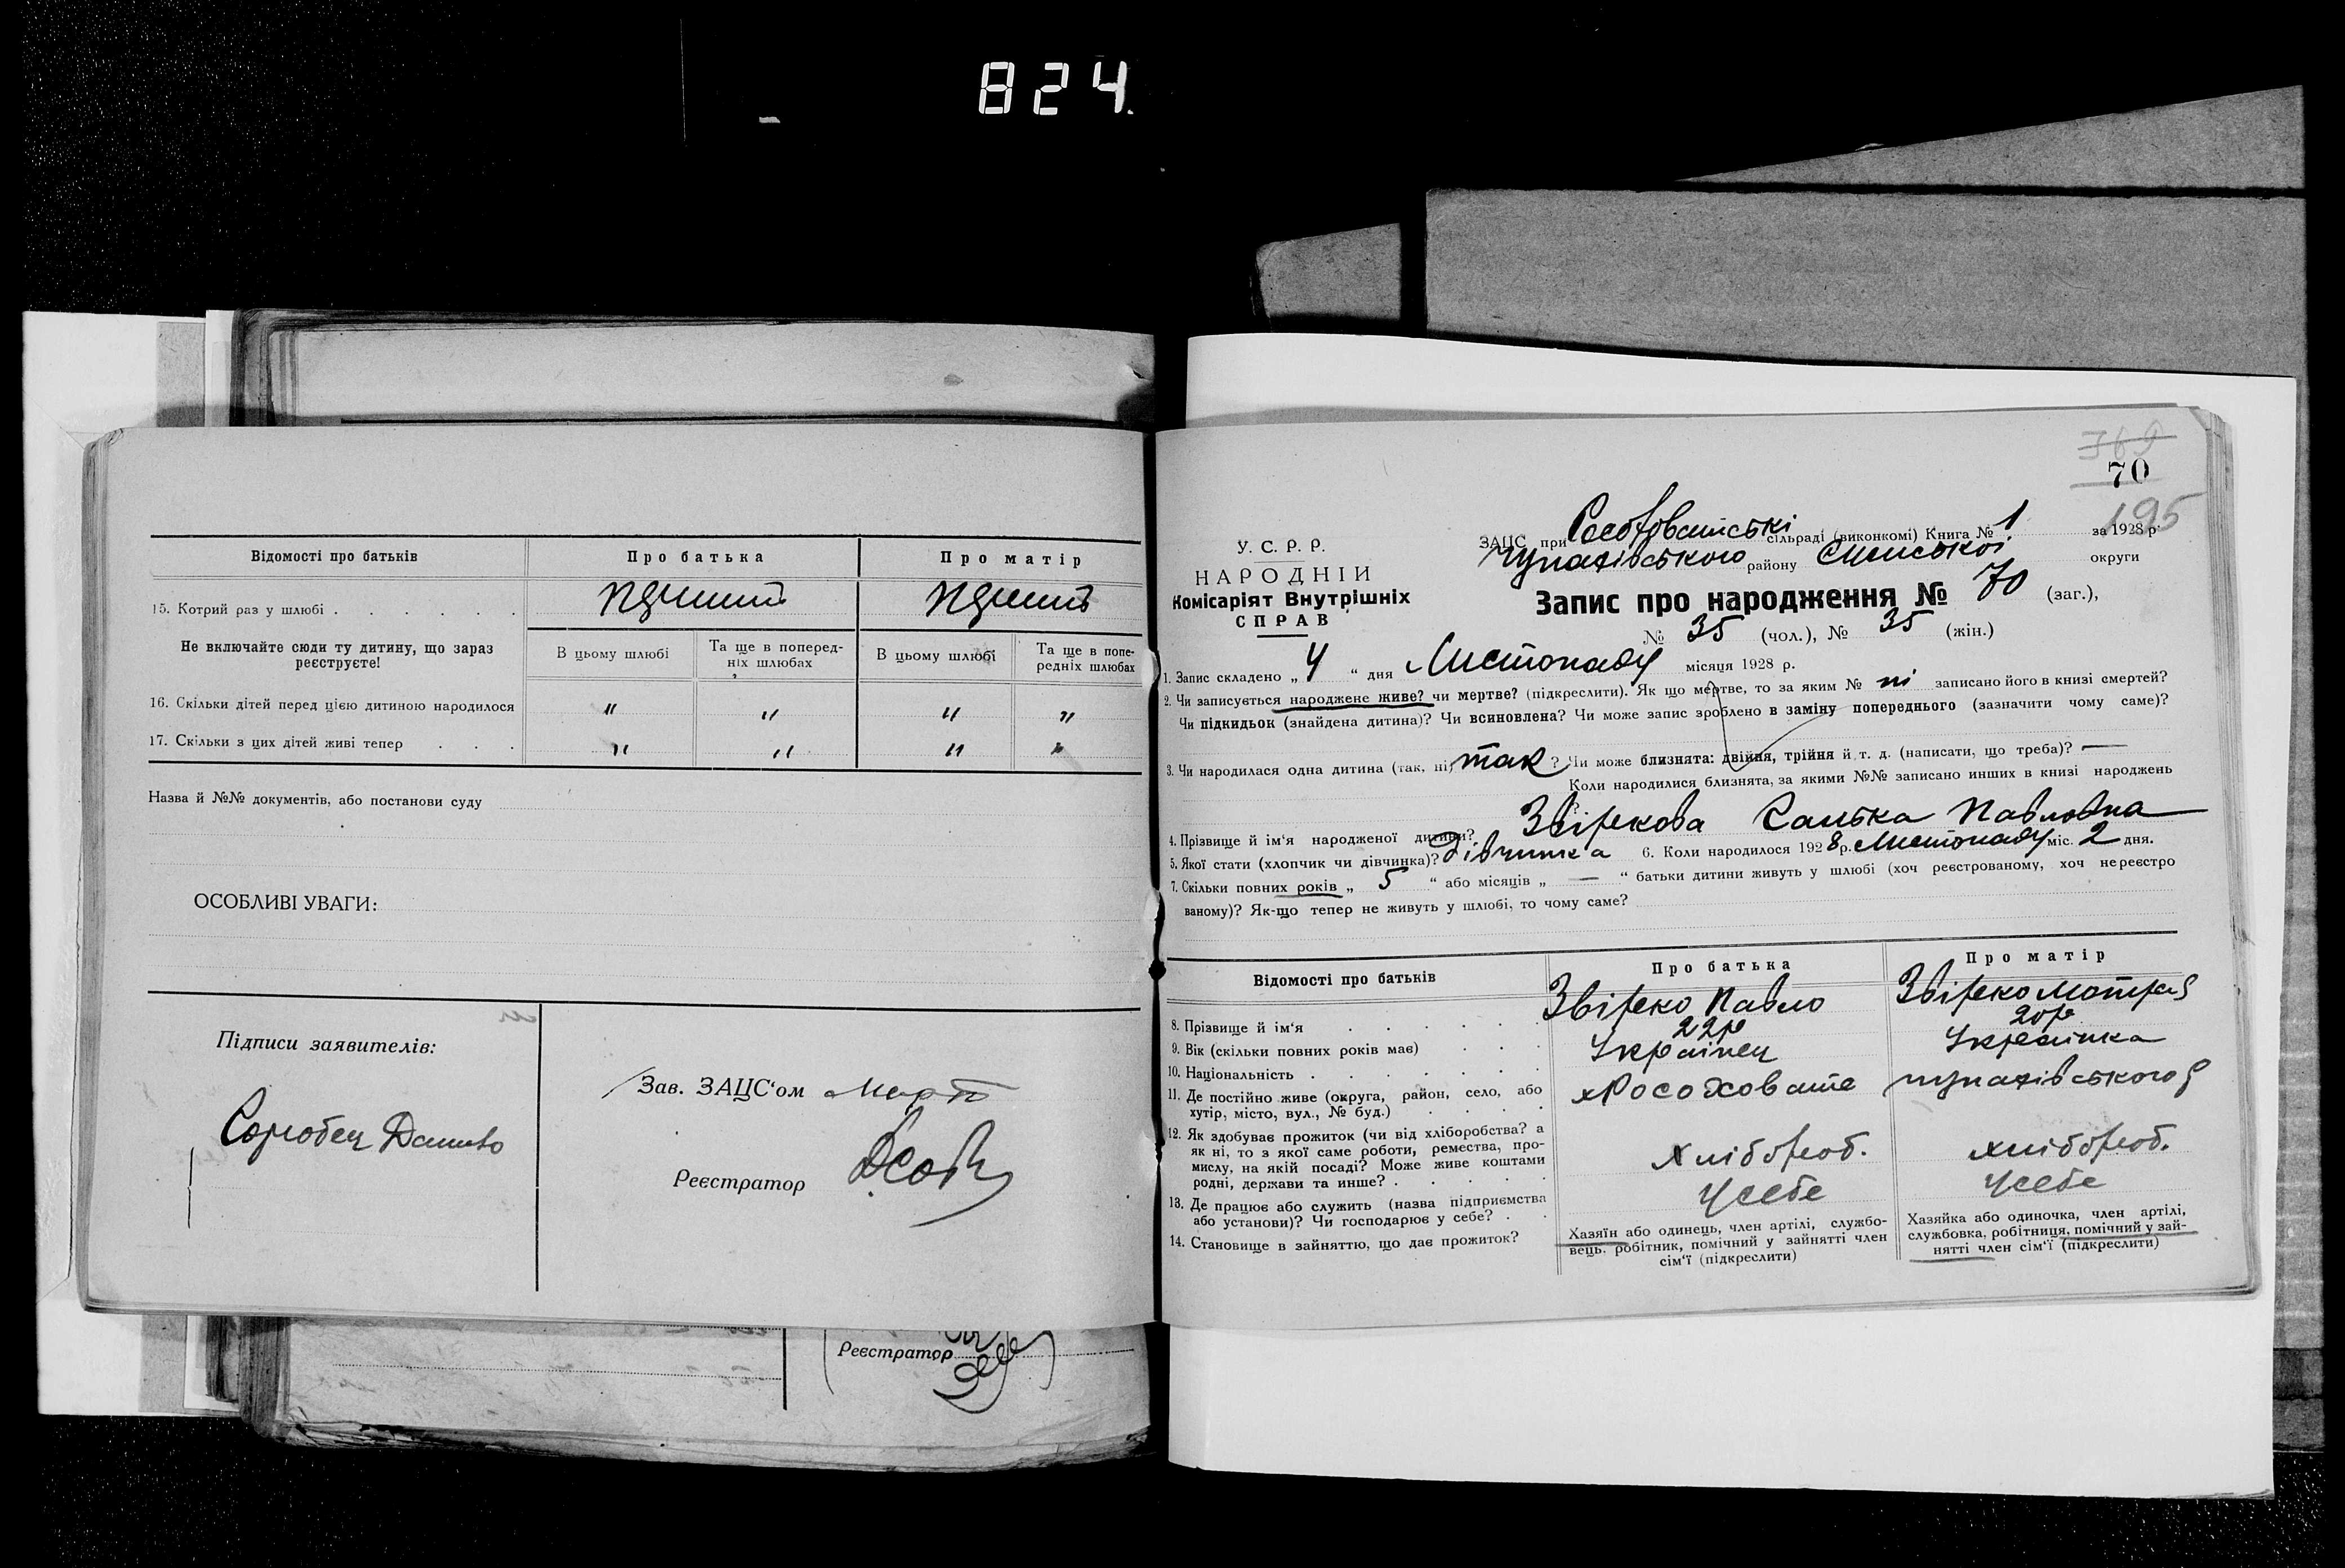 824.
Відомості про батьків
Про батька
Про матір
15. Котрий раз у шлюбі
Не включайте сюди ту дитину, що зараз
реєструєте!
В цьому шлюбі
Та ще в поперед-
ніх шлюбах
В цьому шлюбі
Та ще в попе-
редніх шлюбах
16. Скільки дітей перед цією дитиною народилося
" " " "
17. Скільки з цих дітей живі тепер
" " " "
Назва й №№ документів, або постанови суду
ОСОБЛИВІ УВАГИ:
Підписи заявителів:
Данило
Зав. ЗАЦС'ом
Реєстратор
Реєстратор
369
70
195
У. С. Р. Р.
НАРОДНІЙ
Комісаріят Внутрішніх
СПРАВ
ЗАЦС при сільраді (виконкомі) Книга № 1 за 1928 р.
району Сумської округи
Запис про народження № 70 (заг.),
№ 35 (чол.), № 35 (жін.)
1. Запис складено „ 4 " дня Листопаду місяця 1928 р.
2. Чи записується народжене живе? чи мертве? (підкреслити). Як що мертве, то за яким № ні записано його в книзі смертей?
Чи підкидьок (знайдена дитина)? Чи всиновлена? Чи може запис зроблено в заміну попереднього (зазначити чому саме)?
3. Чи народилася одна дитина (так, ні) так ? Чи може близнята: двійня, трійня й т. д. (написати, що треба)? —
Коли народилися близнята, за якими №№ записано инших в книзі народжень
?
4. Прізвище й ім'я народженої дитини? Звірекова Санька Павловна
5. Якої стати (хлопчик чи дівчинка)? Дівчинка 6. Коли народилося 1928 р. Листопаду міс. 2 дня.
7. Скільки повних років „ 5 " або місяців „ — " батьки дитини живуть у шлюбі (хоч реєстрованому, хоч нереєстро
ваному)? Як-що тепер не живуть у шлюбі, то чому саме?
Відомості про батьків
Про батька
Про матір
8. Прізвище й ім'я
Звіреко Павло
Звіреко Мотря
9. Вік (скільки повних років має)
22р
20р
10. Національність
Українец
Українка
11. Де постійно живе (округа, район, село, або
хутір, місто, вул., № буд.)
хРосоховате
12. Як здобуває прожиток (чи від хліборобства? а
як ні, то з якої саме роботи, ремества, про-
мислу, на якій посаді? Може живе коштами
родні, держави та инше?
хлібороб.
хлібороб.
13. Де працює або служить (назва підприємства
або установи)? Чи господарює у себе?
у себе
у себе
14. Становище в зайняттю, що дає прожиток?
Хазяїн або одинець, член артілі, службо-
вець, робітник, помічний у зайнятті член
сім'ї (підкреслити)
Хазяйка або одиночка, член артілі,
службовка, робітниця, помічний у зай-
нятті член сім'ї (підкреслити)